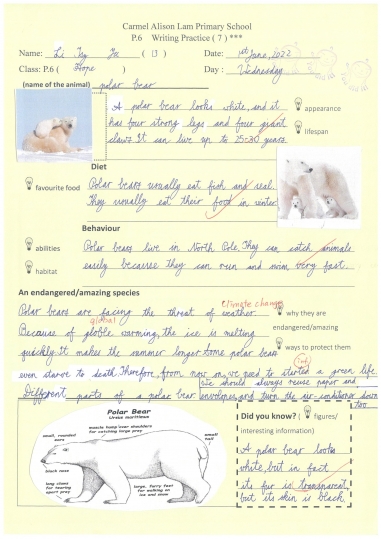 Carmel Alison Lam Primary School
P.6 Writing Practice ( 7 ) ***
Name: Li Ky Yu ( 13 ) Date: 1st June, 2022
Class: P.6 ( Hope ) Day : Wednesday
(name of the animal) polar bear
A polar bear looks white, and it
has four strong legs and four giant
claws. It can live up to 25-30 years.
appearance
lifespan
Diet
favourite food
Polar bears usually eat fish and seal.
They usually eat their food in winter
Behaviour
abilities
habitat
Polar bears live in North Pole. They can catch animals
easily because they can run and swim very fast.
An endangered/amazing species
climate change
Polar bears are facing the threat of weather.
why they are
endangered/amazing
global
Because of globle warming, the ice is melting
quickly. It makes the summer longer. Some polar bears
ways to protect them
even starve to death. Therefore, from now on, we need to started a green life.
We should always reuse paper and
Different parts of a polar bear
envelopes, and turn the air-conditioner down
too.
Polar Bear
Ursus maritimus
muscle hump over shoulders
for catching large prey
small, rounded
ears
small
tail
black nose
long claws
for tearing
apart prey
large, furry feet
for walking on
ice and snow
Did you know? ( figures/
interesting information)
A polar bear looks
white, but in fact
its fur is transparent,
but its skin is black.